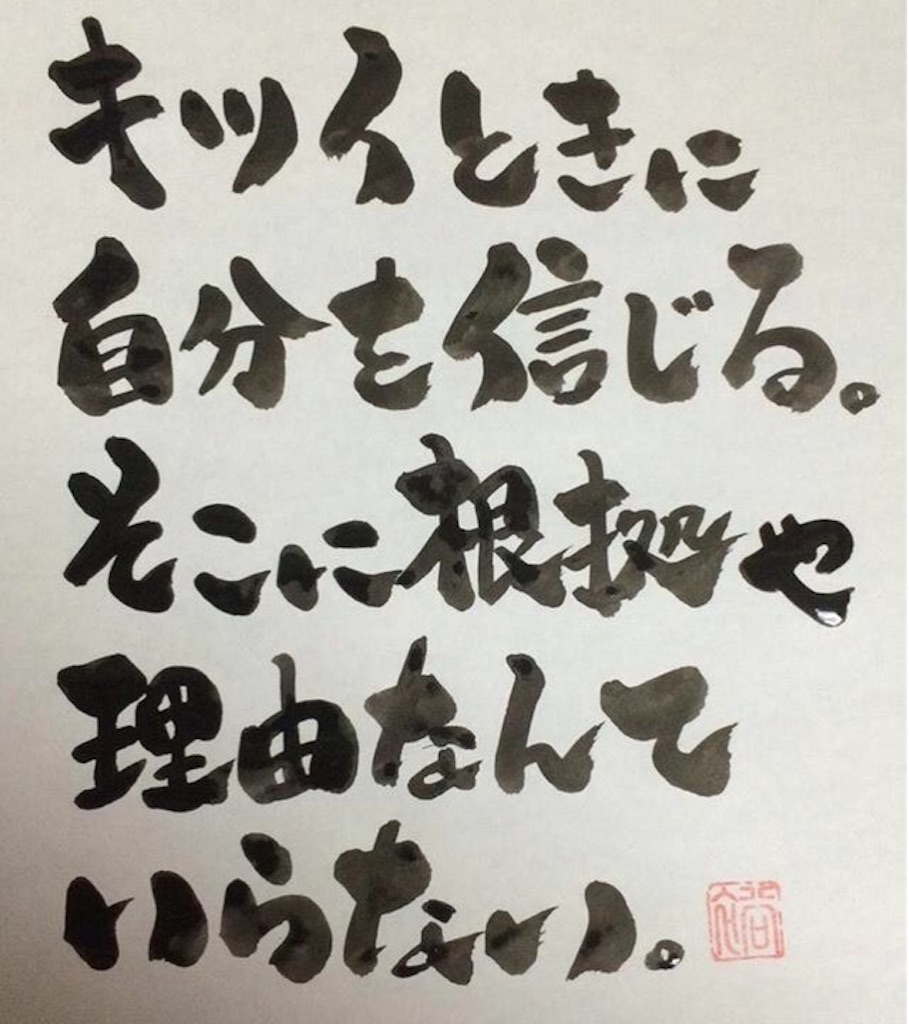 キツイときに
自分を信じる。
そこに根拠や
理由なんて
いらない。